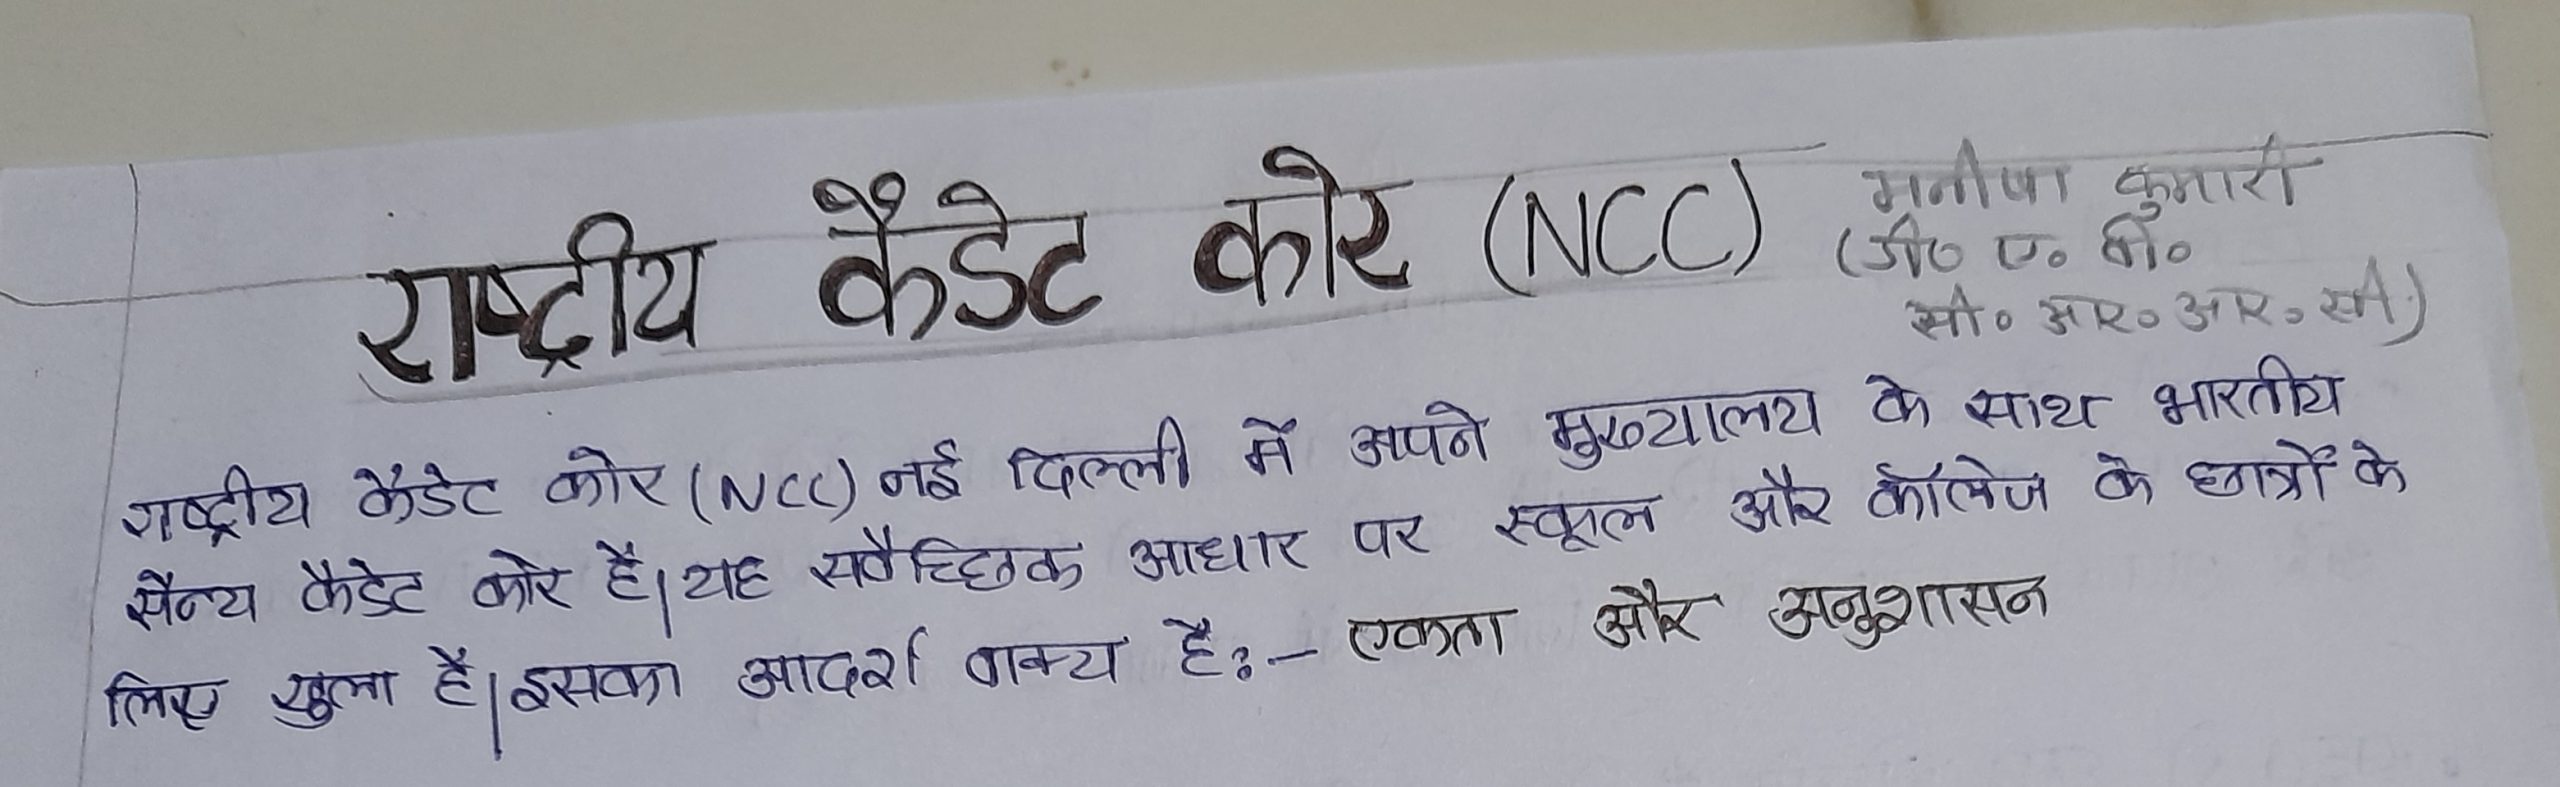 राष्ट्रीय कैडेट कोर (NCC)
मनीषा कुमारी
(डी० ए० बी०
सी० आर० आर० सी)
राष्ट्रीय कैडेट कोर (NCC) नई दिल्ली में अपने मुख्यालय के साथ भारतीय
सैन्य कैडेट कोर है। यह सवैच्छिक आधार पर स्कूल और कॉलेज के छात्रों के
लिए खुला है। इसका आदर्श वाक्य है:- एकता और अनुशासन